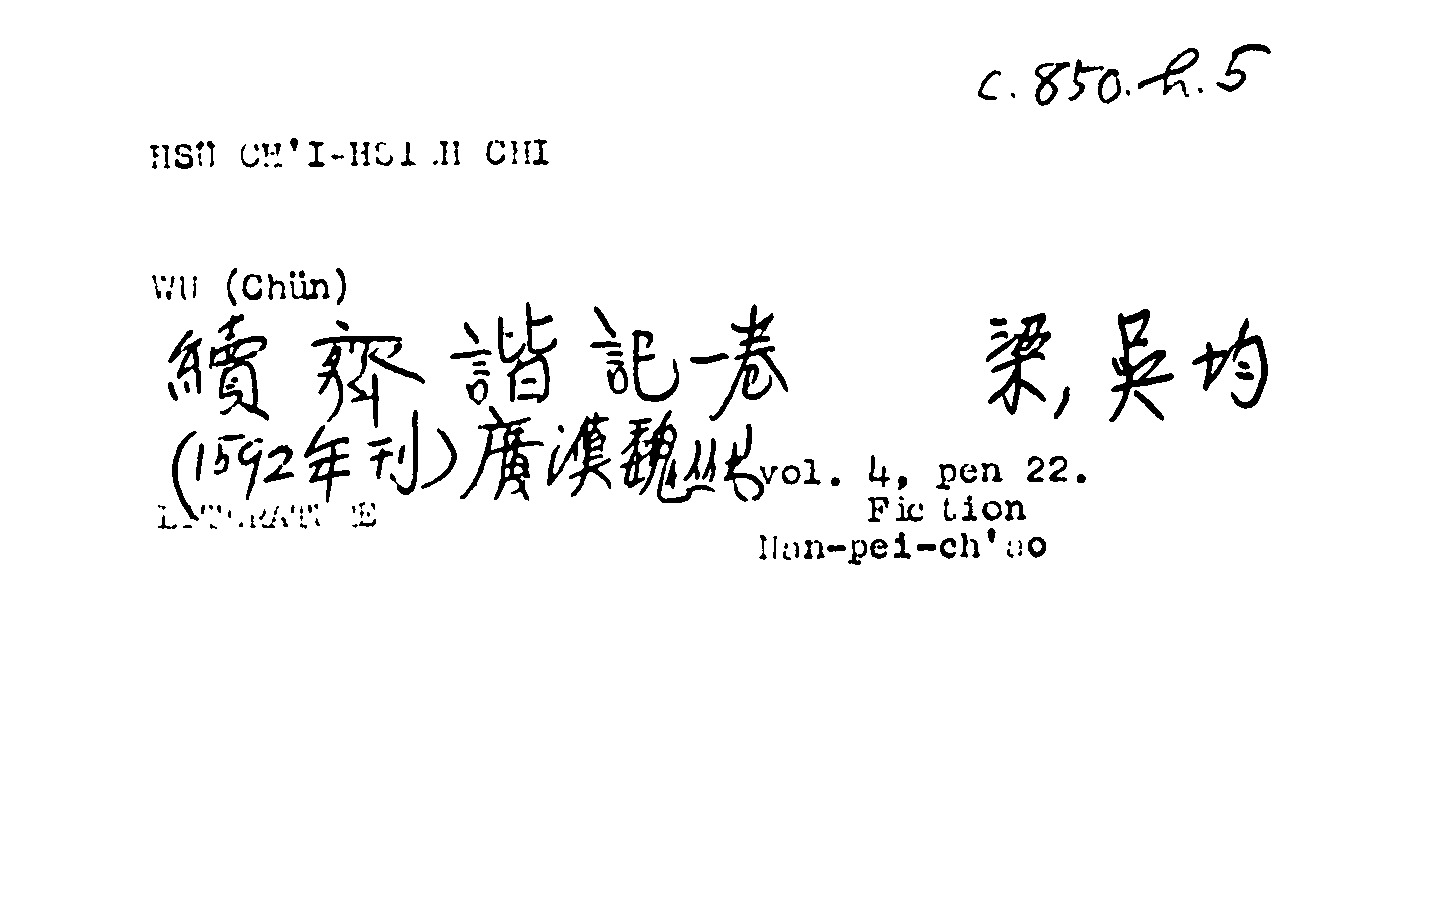 c. 850. h. 5
HSÜ CH'I-HSIEH CHI
WU (Chün)
續齊諧記一卷 梁, 吳均
(1592年刊) 廣漢魏丛书 vol. 4, pen 22.
LITERATURE Fiction
Nan-pei-ch'ao